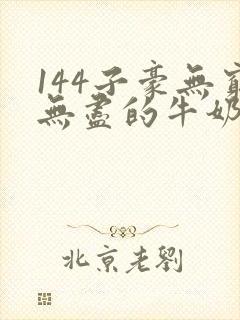 144子豪無窮
無盡的牛奶
北京老劉